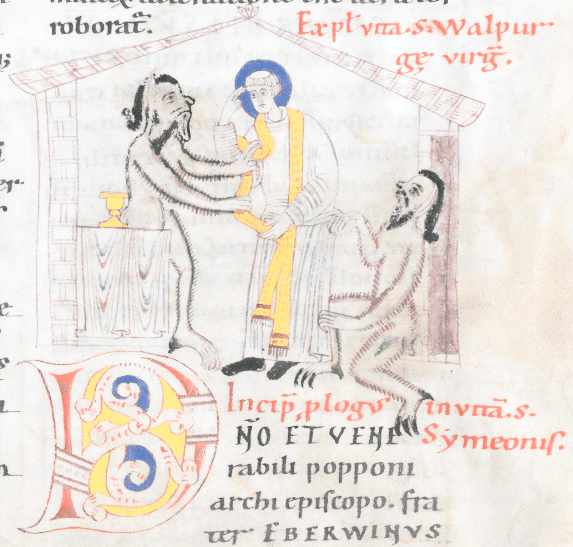 roborat̃.
Expl̃ vita. S. Walpur
gę virg̃.
Incip̃ ꝓlogus in vitã. S.
Symeonis.
DÑO ET VENE
rabili popponi
archiepiscopo. fra
ter EBERWINVS